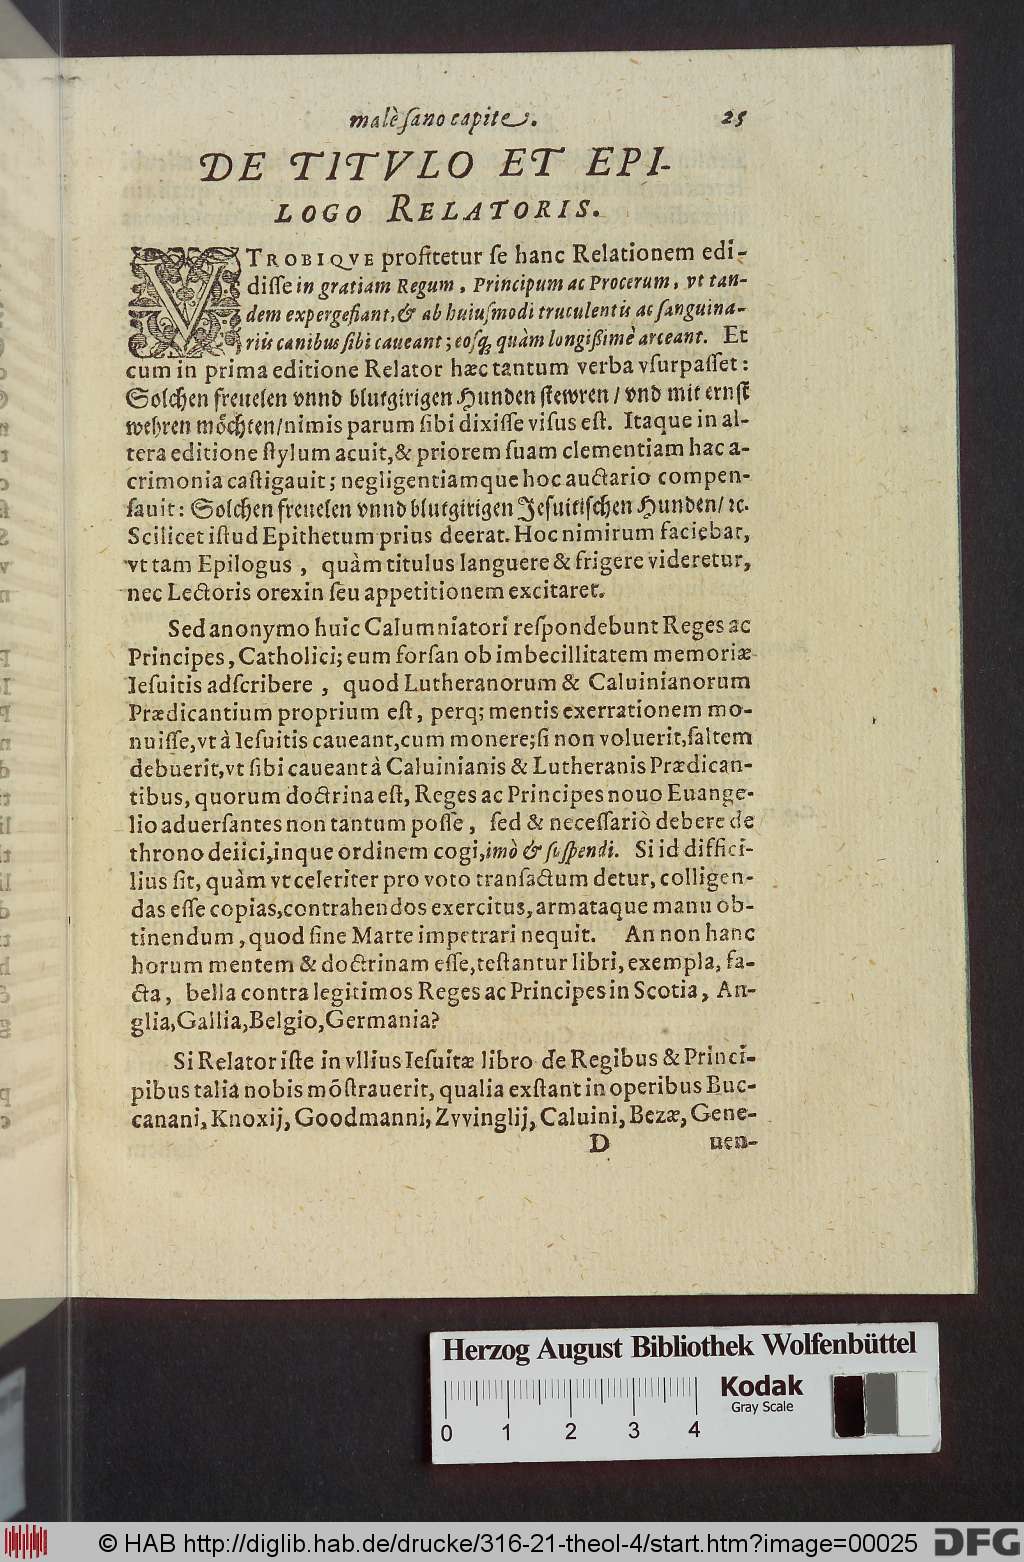 malè ſano capite.
25
DE TITVLO ET EPI-
LOGO RELATORIS.
VTROBIQVE profitetur ſe hanc Relationem edi-
diſſe in gratiam Regum, Principum ac Procerum, vt tan-
dem expergefiant, & ab huiuſmodi truculentis ac ſanguina-
riis canibus ſibi caueant; eoſq; quàm longißimè arceant. Et
cum in prima editione Relator hæc tantum verba vſurpaſſet:
Solchen freuelen vnnd blutgirigen Hunden ſtewren / vnd mit ernſt
wehren möchten/ nimis parum ſibi dixiſſe viſus eſt. Itaque in al-
tera editione ſtylum acuit, & priorem ſuam clementiam hac a-
crimonia caſtigauit; negligentiamque hoc auctario compen-
ſauit: Solchen freuelen vnnd blutgirigen Jeſuitiſchen Hunden/ ꝛc.
Scilicet iſtud Epithetum prius deerat. Hoc nimirum faciebat,
vt tam Epilogus, quàm titulus languere & frigere videretur,
nec Lectoris orexin ſeu appetitionem excitaret.
Sed anonymo huic Calumniatori reſpondebunt Reges ac
Principes, Catholici; eum forſan ob imbecillitatem memoriæ
Ieſuitis adſcribere, quod Lutheranorum & Caluinianorum
Prædicantium proprium eſt, perq; mentis exerrationem mo-
nuiſſe, vt à Ieſuitis caueant, cum monere; ſi non voluerit, ſaltem
debuerit, vt ſibi caueant à Caluinianis & Lutheranis Prædican-
tibus, quorum doctrina eſt, Reges ac Principes nouo Euange-
lio aduerſantes non tantum poſſe, ſed & neceſſariò debere de
throno deiici, inque ordinem cogi, imò & ſuſpendi. Si id diffici-
lius ſit, quàm vt celeriter pro voto tranſactum detur, colligen-
das eſſe copias, contrahendos exercitus, armataque manu ob-
tinendum, quod ſine Marte impetrari nequit. An non hanc
horum mentem & doctrinam eſſe, teſtantur libri, exempla, fa-
cta, bella contra legitimos Reges ac Principes in Scotia, An-
glia, Gallia, Belgio, Germania?
Si Relator iſte in vllius Ieſuitæ libro de Regibus & Princi-
pibus talia nobis mõſtrauerit, qualia exſtant in operibus Buc-
canani, Knoxij, Goodmanni, Zvvinglij, Caluini, Bezæ, Gene-
D
uen-
Herzog August Bibliothek Wolfenbüttel
Kodak
Gray Scale
0 1 2 3 4
© HAB http://diglib.hab.de/drucke/316-21-theol-4/start.htm?image=00025
DFG